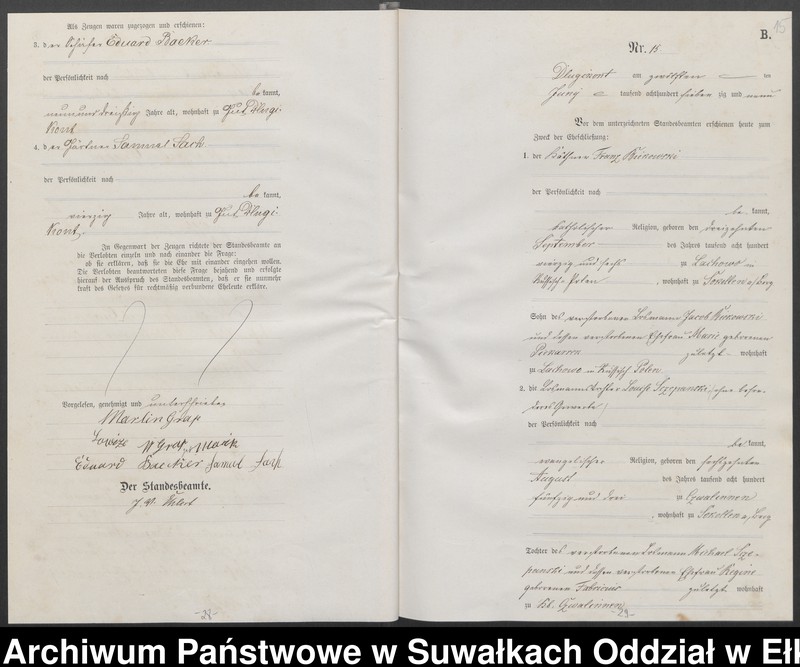 Als Zeugen waren zugezogen und erschienen:
3. der Schäfer Eduard Baeker
der Persönlichkeit nach
be kannt,
neununddreißig Jahre alt, wohnhaft zu Gut Dlugi
Kont
4. der Gärtner Samuel Sack
der Persönlichkeit nach
be kannt,
vierzig Jahre alt, wohnhaft zu Gut Dlugi
Kont,
In Gegenwart der Zeugen richtete der Standesbeamte an
die Verlobten einzeln und nach einander die Frage:
ob sie erklären, daß sie die Ehe mit einander eingehen wollen.
Die Verlobten beantworteten diese Frage bejahend und erfolgte
hierauf der Ausspruch des Standesbeamten, daß er sie nunmehr
kraft des Gesetzes für rechtmäßig verbundene Eheleute erkläre.
Vorgelesen, genehmigt und unterschrieben
Martin Graf
Eduard Baeker Samuel Sack
Der Standesbeamte.
-28-
15
B.
Nr. 15
Dlugikont am zwölften ten
Juny tausend achthundert sieben zig und neun
Vor dem unterzeichneten Standesbeamten erschienen heute zum
Zweck der Eheschließung:
1. der Käthner Franz
der Persönlichkeit nach
be kannt,
katholischer Religion, geboren den dreizehnten
September des Jahres tausend acht hundert
vierzig und sechs zu Lachowo in
Russisch-Polen , wohnhaft zu Sokollen a/Berg
Sohn des verstorbenen Losmann Jacob
und dessen verstorbenen Ehefrau Marie geborenen
zuletzt wohnhaft
zu Lachowo in Russisch Polen
2. die Losmannstochter Louise Szepanski, ohne beson-
deres Gewerbe,
der Persönlichkeit nach
be kannt,
evangelischer Religion, geboren den sechszehnten
August des Jahres tausend acht hundert
fünfzig und drei zu Gwalinnen
, wohnhaft zu Sokollen a/Berg
Tochter des verstorbenen Losmann Michael Szc-
panski und dessen verstorbenen Ehefrau Regine
geborenen Fabricius zuletzt wohnhaft
zu Kl. Gwalinnen
-29-
Archiwum Państwowe w Suwałkach Oddział w Eł